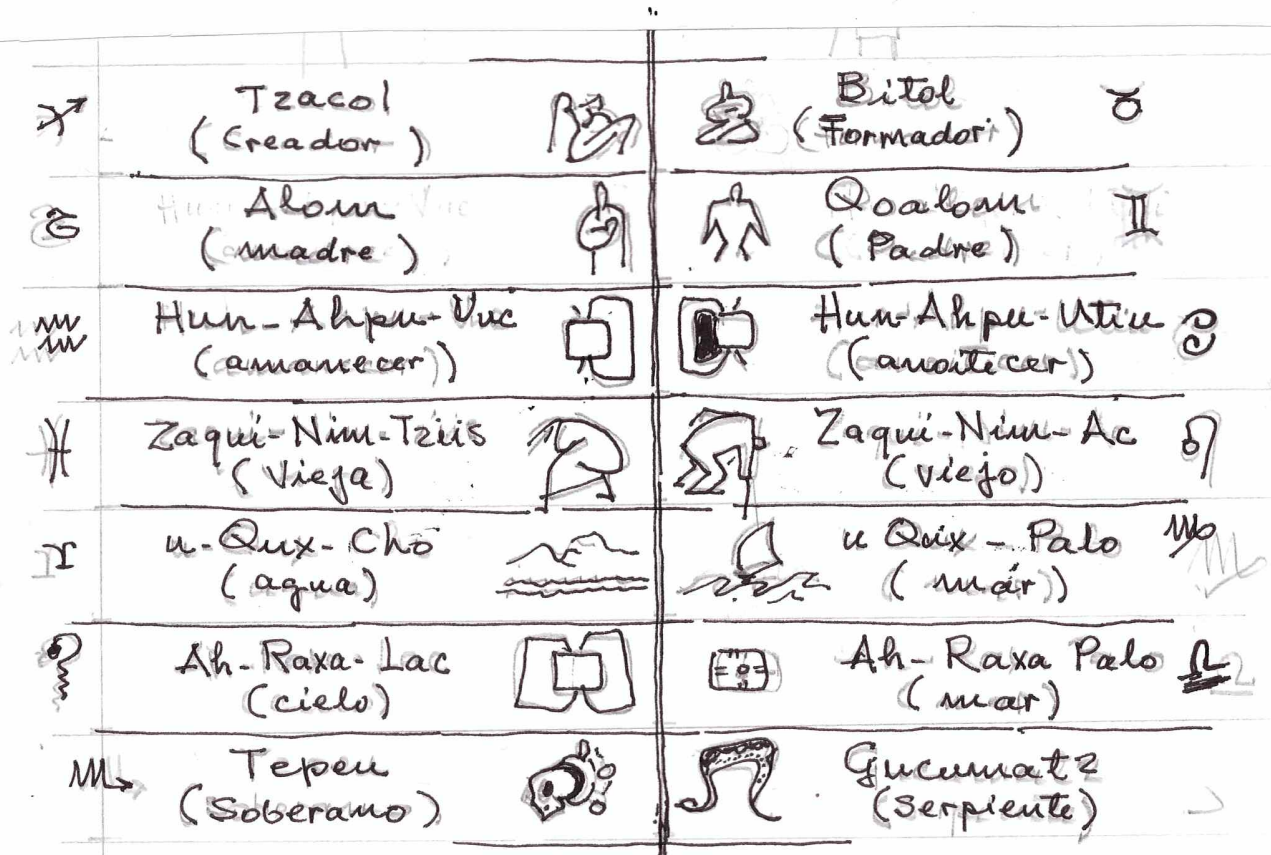 Tzacol
(Creador)
Bitol
(Formador)
Alom
(madre)
Qoalom
(Padre)
Hun-Ahpu-Vuc
(amanecer))
Hun-Ahpu-Utiu
((anoitecer))
Zaqui-Nim-Tziis
(Vieja)
Zaqui-Nim-Ac
(viejo)
u-Qux-Cho
(agua)
u Qux-Palo
(mar))
Ah-Raxa-Lac
(cielo)
Ah-Raxa Palo
(mar)
Tepeu
(Soberano)
Gucumatz
(Serpiente)